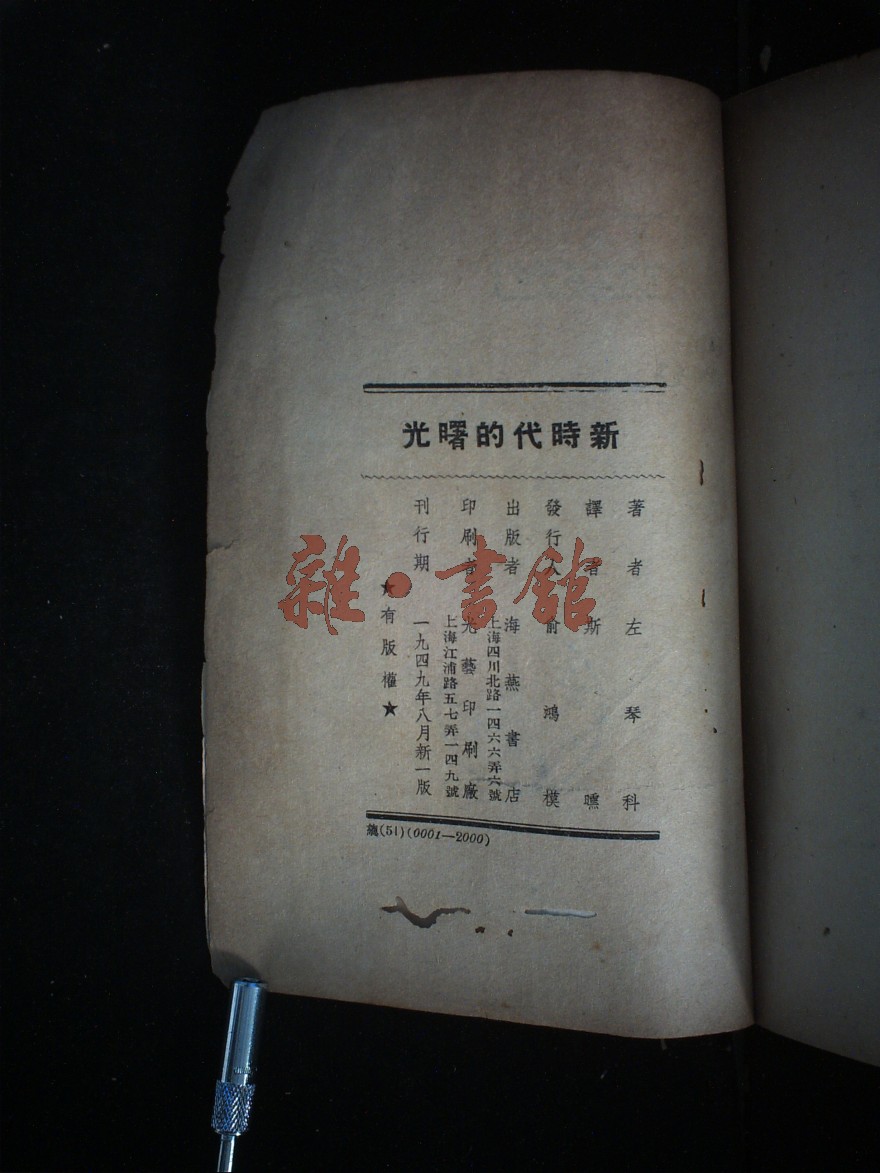 新時代的曙光
著者左琴科
譯者斯曛
發行人俞鴻模
出版者海燕書店
上海四川北路一四六六弄六號
印刷者光藝印刷廠
上海江浦路五七弄一四九號
刊行期一九四九年八月新一版
★有版權★
(51)(0001—2000)
雜·書館